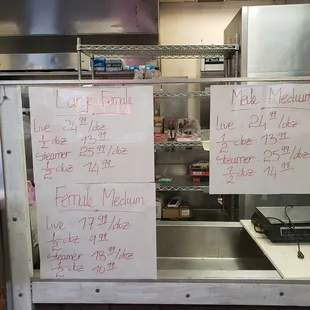 Large Female
Live 24 99/doz
1/2 doz 13 99
Steamer 25 99/doz
1/2 doz 14 99
Female Medium
Live 17 99/doz
1/2 doz 9 99
Steamer 18 99/doz
1/2 doz 10 99
Male Medium
Live 24 99/doz
1/2 doz 13 99
Steamer 25 99/doz
1/2 doz 14 99